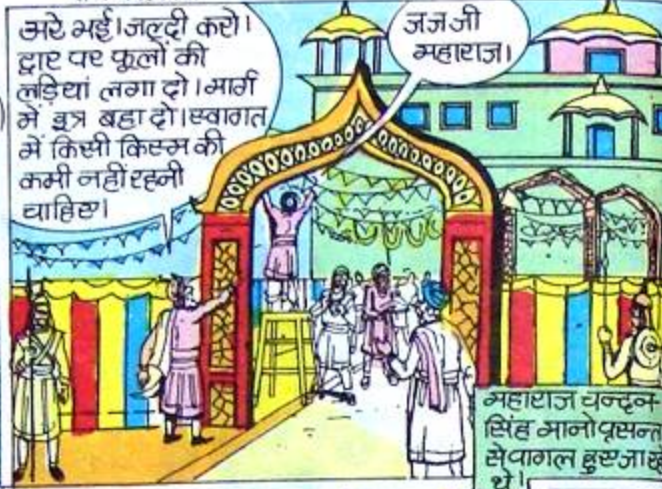 अरे भई। जल्दी करो।
द्वार पर फूलों की
लड़ियां लगा दो। मार्ग
में इत्र बहा दो। स्वागत
में किसी किस्म की
कमी नहीं रहनी
चाहिए।
जजजी
महाराज।
महाराज चन्दन
सिंह मानो प्रसन्न
से पागल हुए जा रहे
थे।